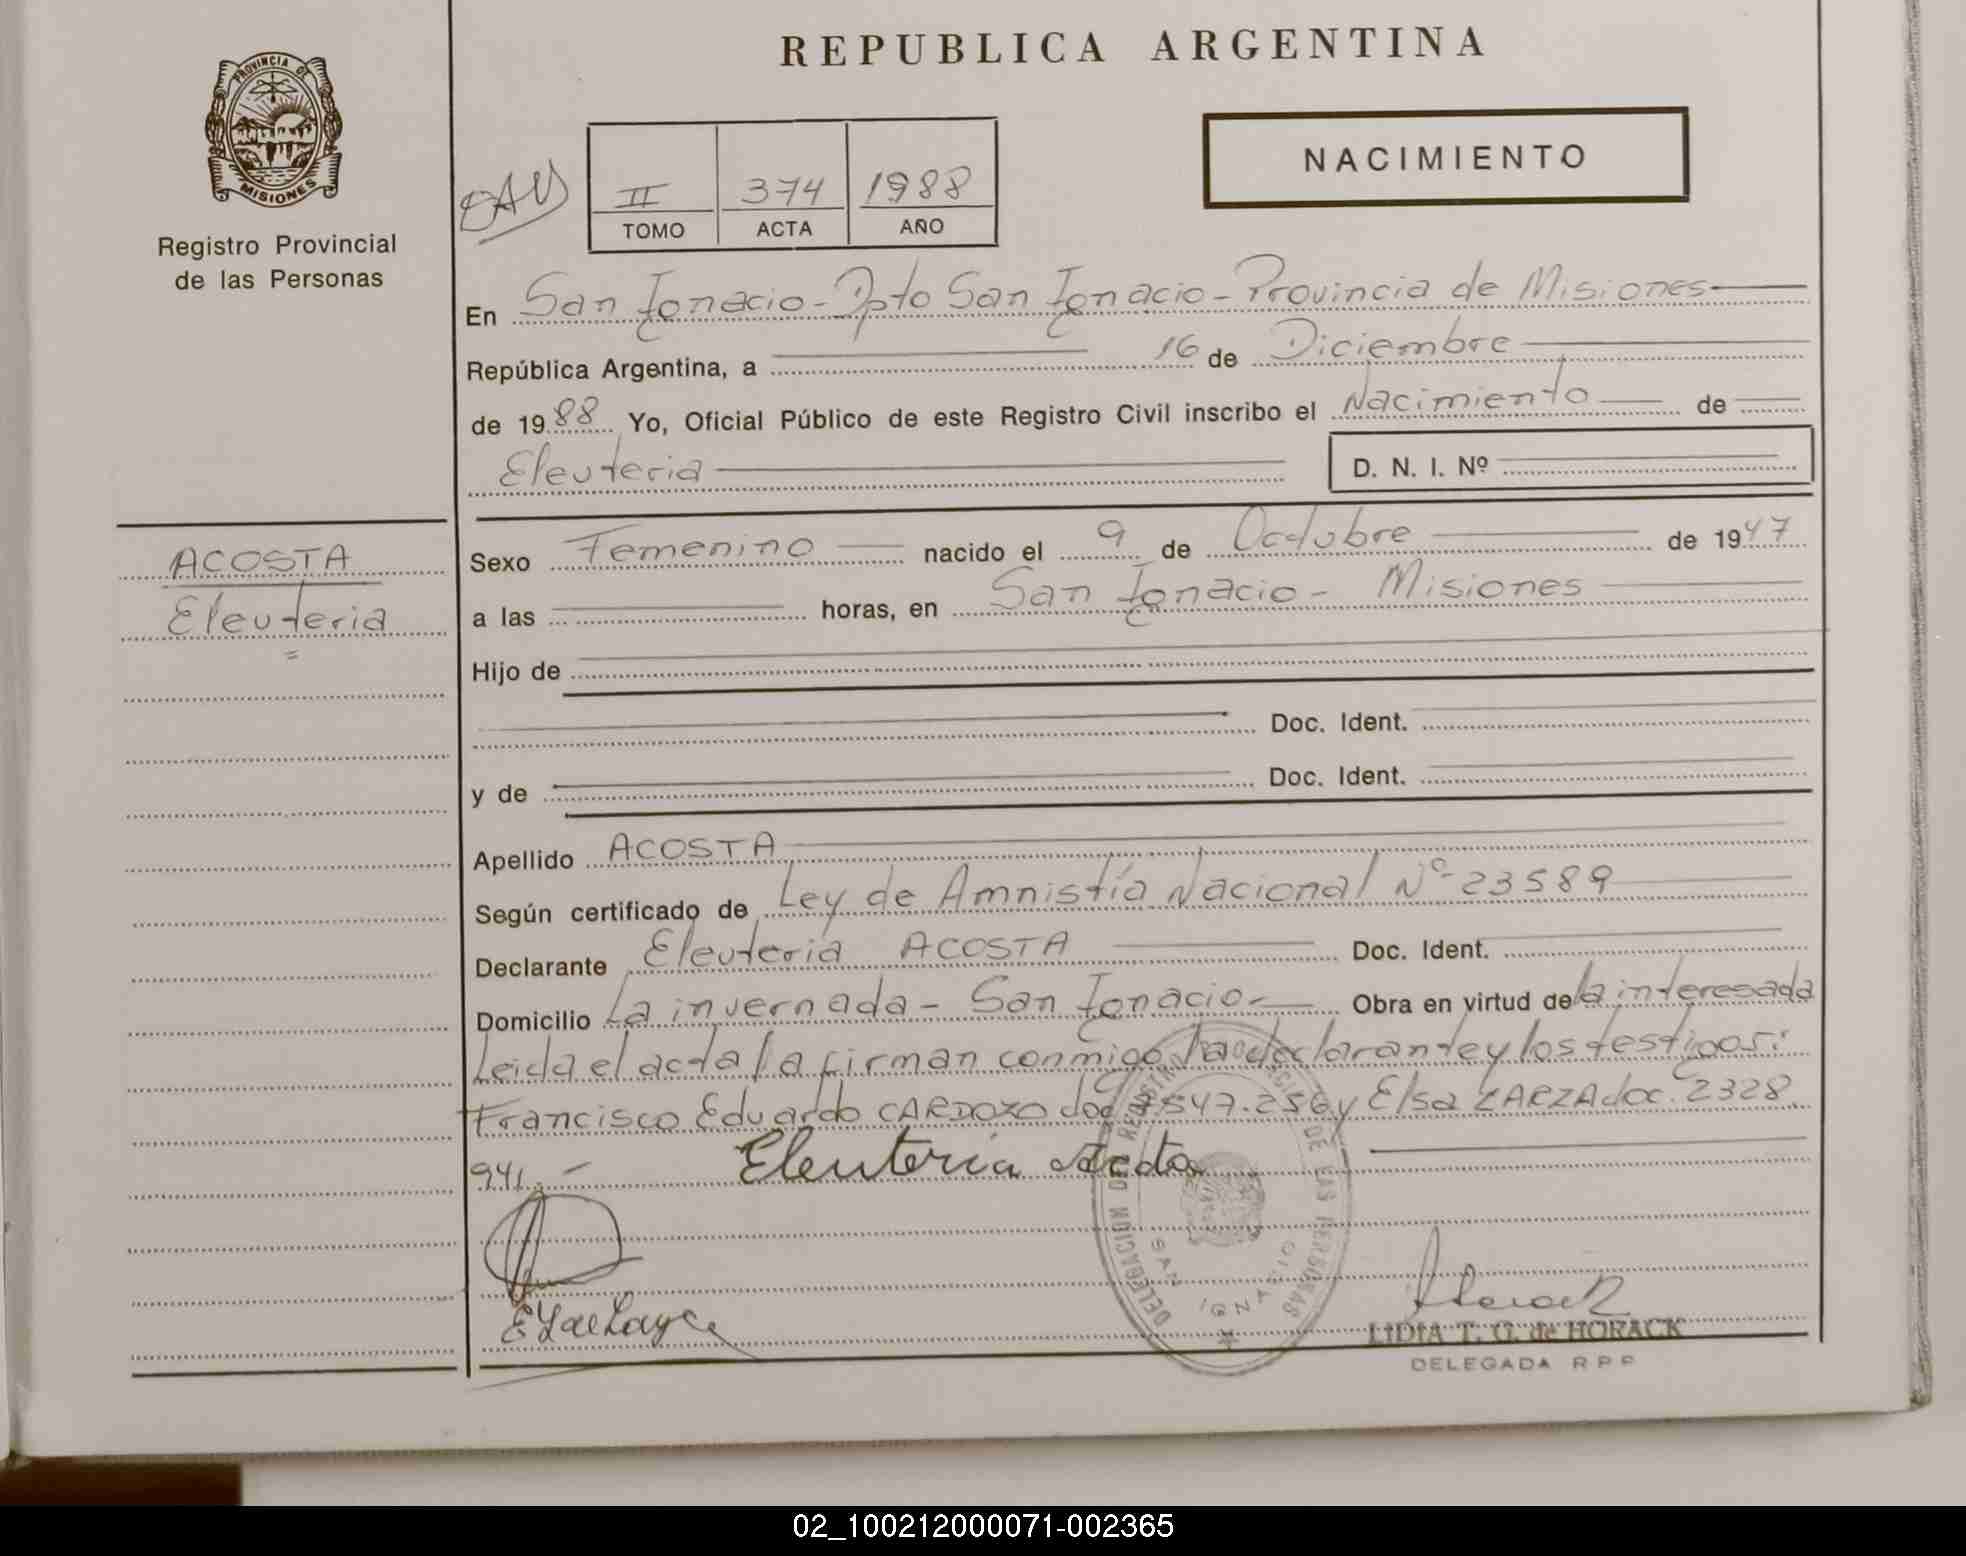 REPUBLICA ARGENTINA
PROVINCIA DE
MISIONES
Registro Provincial
de las Personas
NACIMIENTO
II 374 1988
TOMO ACTA AÑO
En San Ignacio - Dpto San Ignacio - Provincia de Misiones
República Argentina, a 16 de Diciembre
de 1988 Yo, Oficial Público de este Registro Civil inscribo el Nacimiento de
Eleuteria D. N. I. Nº
ACOSTA
Eleuteria
Sexo Femenino nacido el 9 de Octubre de 1947
a las horas, en San Ignacio - Misiones
Hijo de
Doc. Ident.
y de Doc. Ident.
Apellido ACOSTA
Según certificado de Ley de Amnistía Nacional Nº 23589
Declarante Eleuteria ACOSTA Doc. Ident.
Domicilio La invernada - San Ignacio - Obra en virtud de la interesada
Leida el acta la firman conmigo la declarante y los testigos:
Francisco Eduardo CARDOZO doc 547.256 y Elsa ZARZA doc. 2328.
941. -
Eleuteria
DELEGACION REGISTRO PROVINCIAL DE LAS PERSONAS
SAN IGNACIO
LIDIA T. G. de HORACK
DELEGADA R P P
02_100212000071-002365